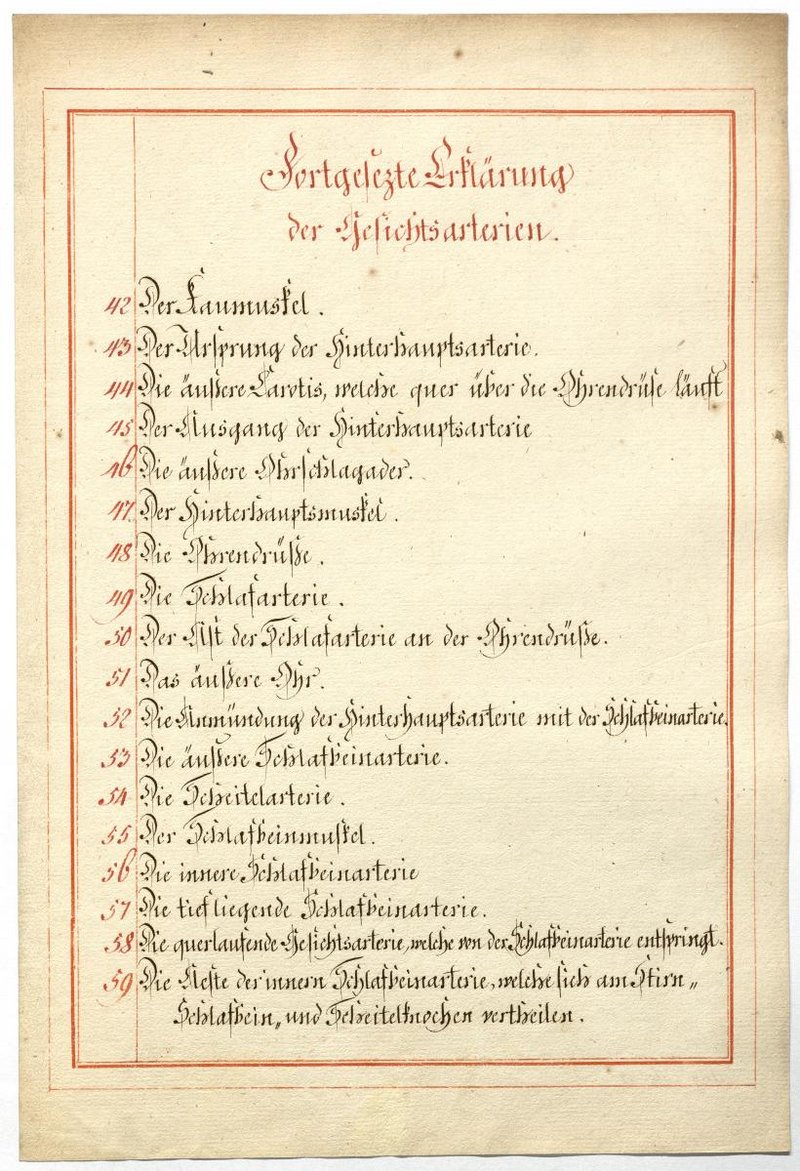 Fortgesezte Erklärung
der Gesichtsarterien.
42 Der Kaumuskel.
43 Der Ursprung der Hinterhauptsarterie.
44 Die äußere Carotis, welche quer über die Ohrendrüse läuft
45 Der Ausgang der Hinterhauptsarterie
46 Die äußere Ohrschlagader.
47 Der Hinterhauptsmuskel.
48 Die Ohrendrüße.
49 Die Schlafarterie.
50 Der Ast der Schlafarterie an der Ohrendrüße.
51 Das äußere Ohr.
52 Die Anmündung der Hinterhauptsarterie mit der Schlafbeinarterie.
53 Die äußere Schlafbeinarterie.
54 Die Scheitelarterie.
55 Der Schlafbeinmuskel.
56 Die innere Schlafbeinarterie
57 Die tiefliegende Schlafbeinarterie.
58 Die querlaufende Gesichtsarterie, welche von der Schlafbeinarterie entspringt.
59 Die Aeste der innern Schlafbeinarterie, welche sich am Stirn„
Schlafbein„ und Scheitelknochen vertheilen.